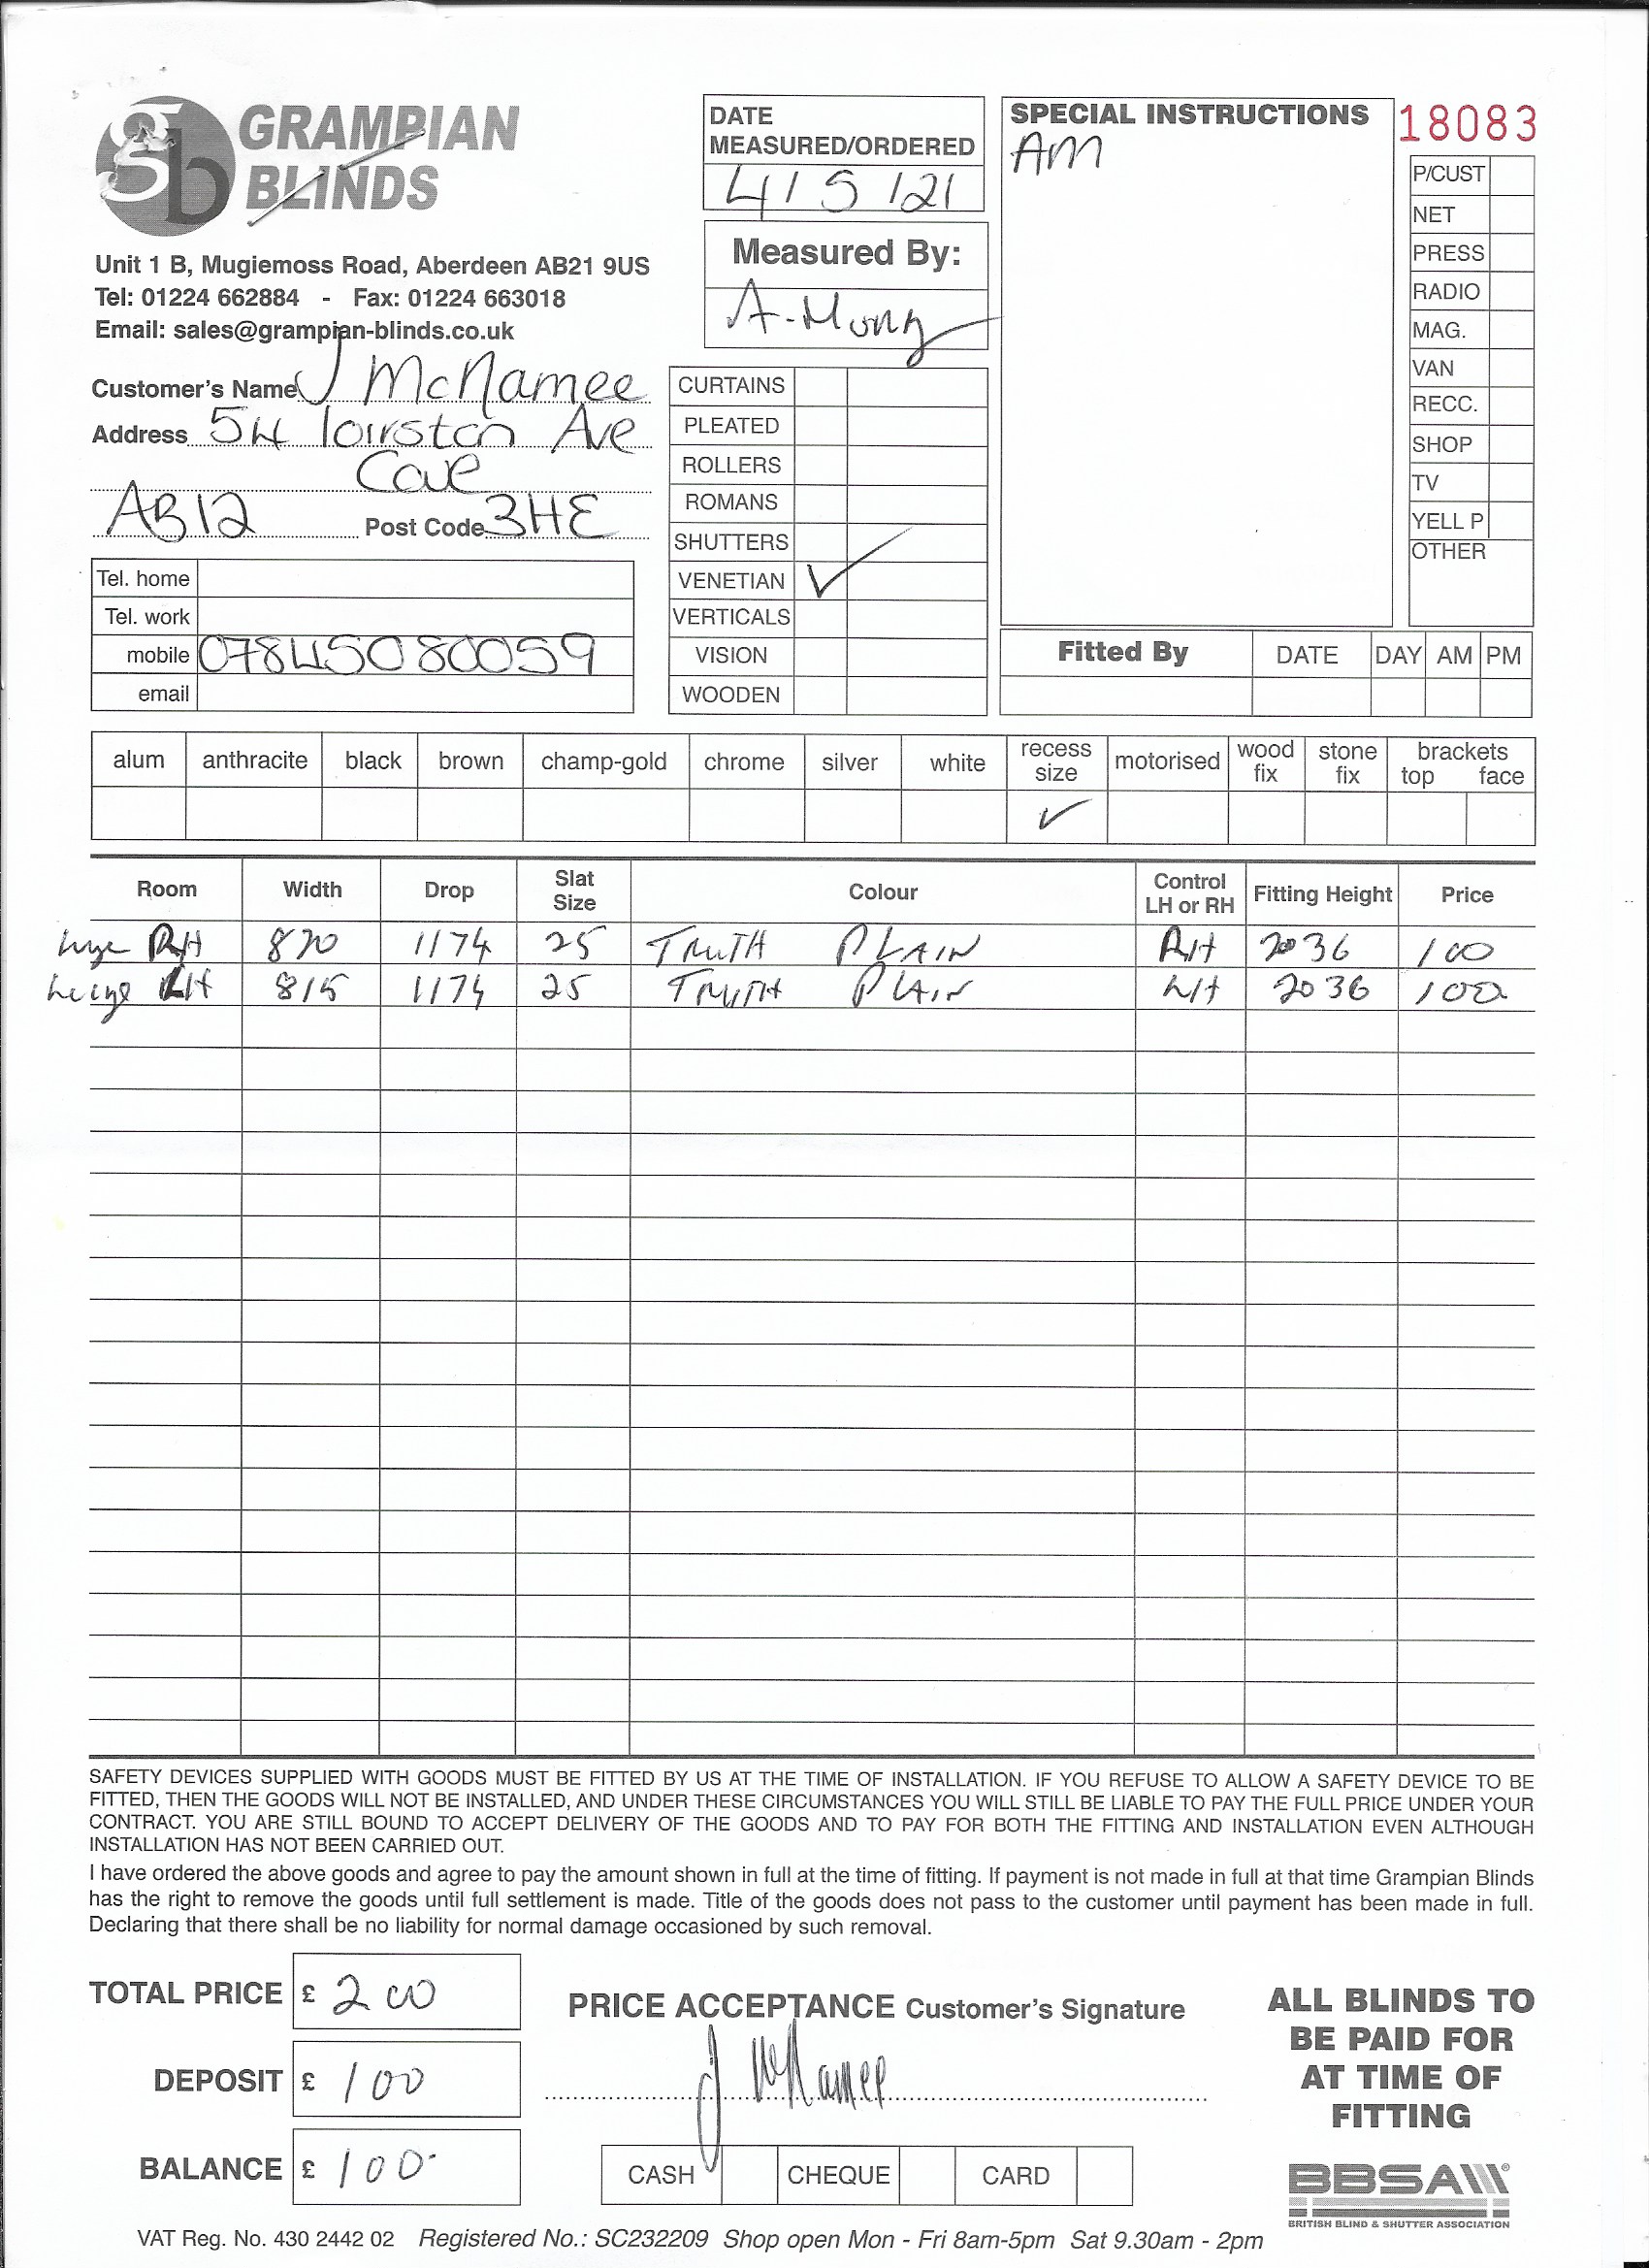 gb GRAMPIAN BLINDS
Unit 1 B, Mugiemoss Road, Aberdeen AB21 9US
Tel: 01224 662884 - Fax: 01224 663018
Email: sales@grampian-blinds.co.uk
Customer's Name J McNamee
Address 54 loirston Ave
Cove
AB12 Post Code 3HE
Tel. home
Tel. work
mobile 07845080059
email
DATE
MEASURED/ORDERED
4/5/21
Measured By:
A.
CURTAINS
PLEATED
ROLLERS
ROMANS
SHUTTERS
VENETIAN ✓
VERTICALS
VISION
WOODEN
SPECIAL INSTRUCTIONS
AM
18083
P/CUST
NET
PRESS
RADIO
MAG.
VAN
RECC.
SHOP
TV
YELL P
OTHER
Fitted By DATE DAY AM PM
alum anthracite black brown champ-gold chrome silver white recess size motorised wood fix stone fix brackets top face
✓
Room Width Drop Slat Size Colour Control LH or RH Fitting Height Price
RH 870 1174 25 TRUTH PLAIN RH 2036 100
LH 815 1174 25 TRUTH PLAIN LH 2036 100
SAFETY DEVICES SUPPLIED WITH GOODS MUST BE FITTED BY US AT THE TIME OF INSTALLATION. IF YOU REFUSE TO ALLOW A SAFETY DEVICE TO BE
FITTED, THEN THE GOODS WILL NOT BE INSTALLED, AND UNDER THESE CIRCUMSTANCES YOU WILL STILL BE LIABLE TO PAY THE FULL PRICE UNDER YOUR
CONTRACT. YOU ARE STILL BOUND TO ACCEPT DELIVERY OF THE GOODS AND TO PAY FOR BOTH THE FITTING AND INSTALLATION EVEN ALTHOUGH
INSTALLATION HAS NOT BEEN CARRIED OUT.
I have ordered the above goods and agree to pay the amount shown in full at the time of fitting. If payment is not made in full at that time Grampian Blinds
has the right to remove the goods until full settlement is made. Title of the goods does not pass to the customer until payment has been made in full.
Declaring that there shall be no liability for normal damage occasioned by such removal.
TOTAL PRICE £ 200
DEPOSIT £ 100
BALANCE £ 100
PRICE ACCEPTANCE Customer's Signature
J McNamee
CASH CHEQUE CARD
ALL BLINDS TO
BE PAID FOR
AT TIME OF
FITTING
BBSA
BRITISH BLIND & SHUTTER ASSOCIATION
VAT Reg. No. 430 2442 02 Registered No.: SC232209 Shop open Mon - Fri 8am-5pm Sat 9.30am - 2pm